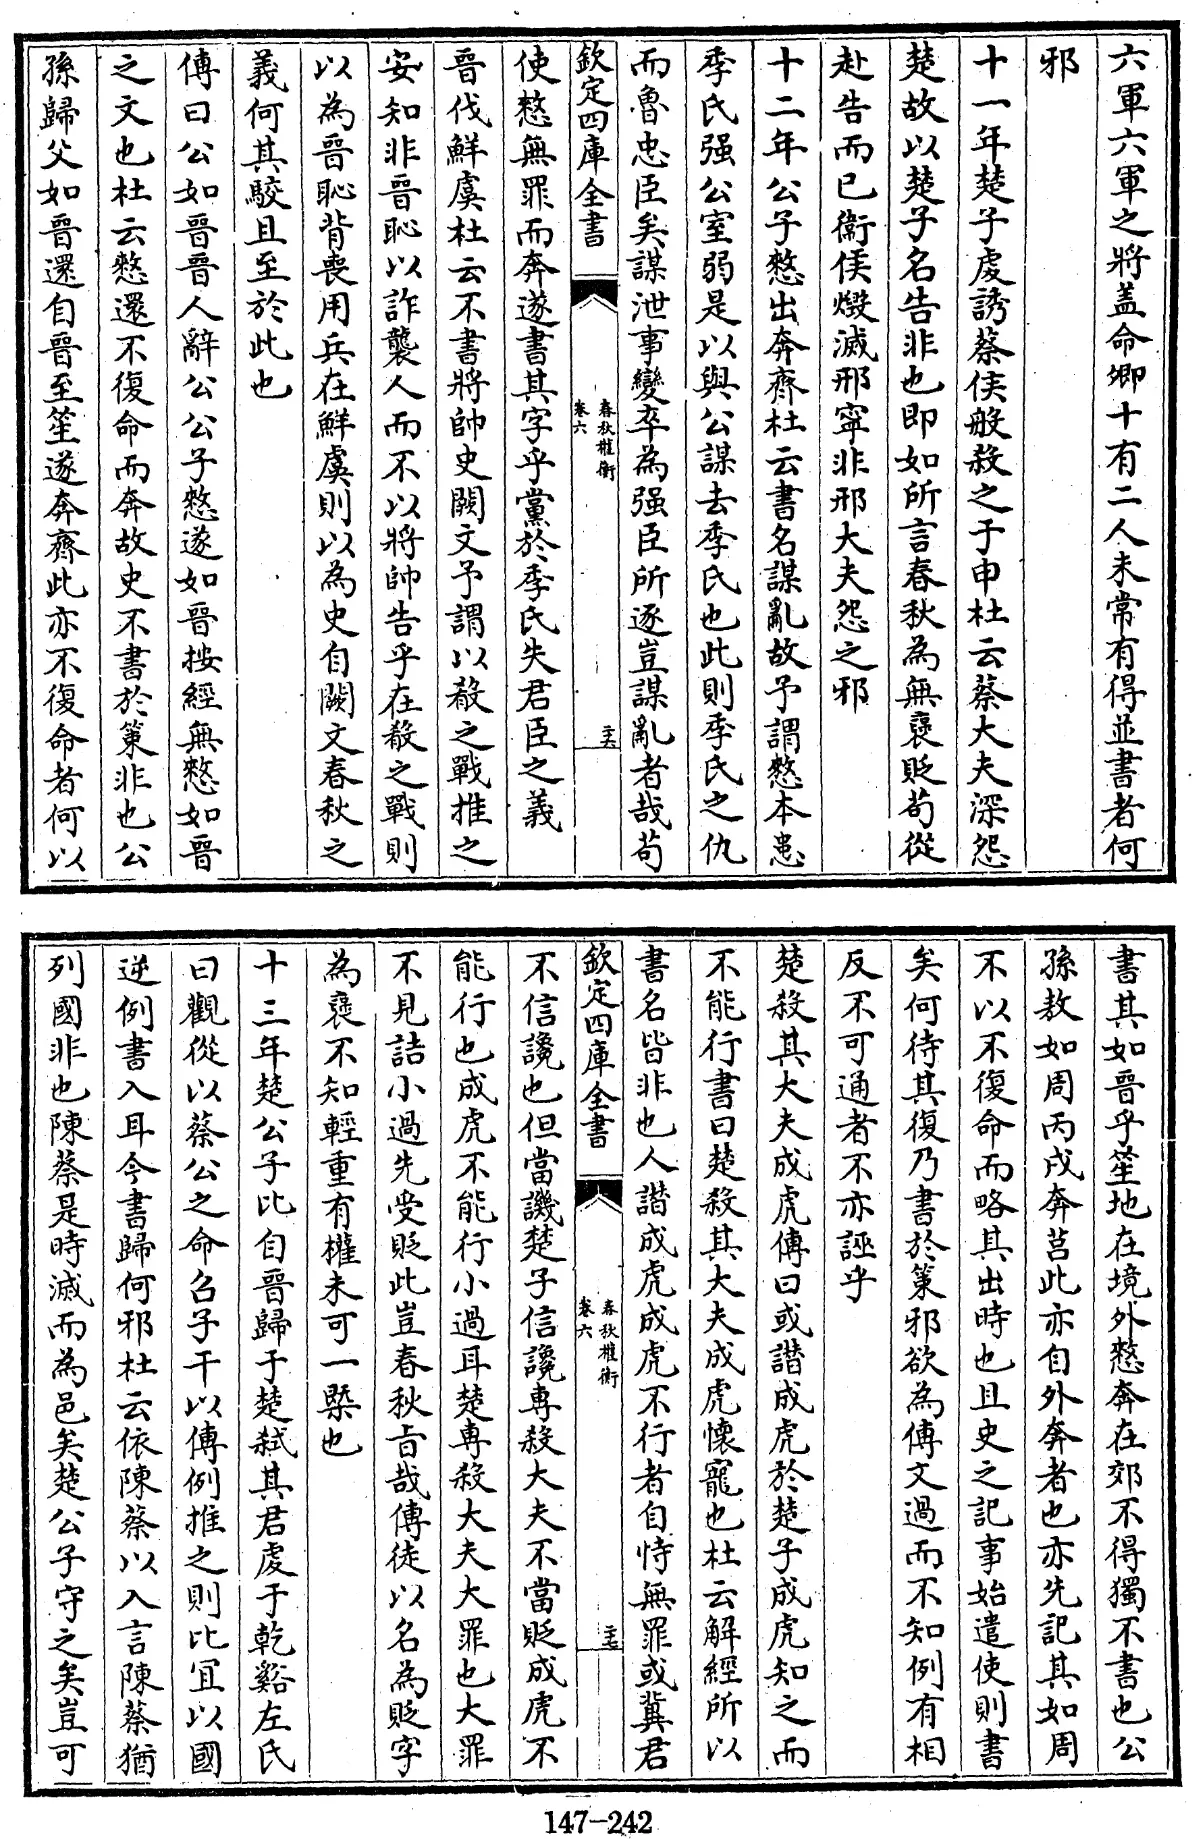 六軍六軍之將蓋命卿十有二人未常有得並書者何
邪
十一年楚子虔誘蔡侯般殺之于申杜云蔡大夫深怨
楚故以楚子名告非也即如所言春秋為無襃貶苟從
赴告而已衛侯燬滅邢寧非邢大夫怨之邪
十二年公子憖出奔齊杜云書名謀亂故予謂憖本患
季氏强公室弱是以與公謀去季氏也此則季氏之仇
而魯忠臣矣謀泄事變卒為强臣所逐豈謀亂者哉苟
欽定四庫全書
春秋權衡
卷六
三六
使憖無罪而奔遂書其字乎黨於季氏失君臣之義
晉伐鮮虞杜云不書將帥史闕文予謂以殽之戰推之
安知非晉恥以詐襲人而不以將帥告乎在殽之戰則
以為晉恥背喪用兵在鮮虞則以為史自闕文春秋之
義何其駮且至於此也
傳曰公如晉晉人辭公公子憖遂如晉按經無憖如晉
之文也杜云憖還不復命而奔故史不書於策非也公
孫歸父如晉還自晉至笙遂奔齊此亦不復命者何以
書其如晉乎笙地在境外憖奔在郊不得獨不書也公
孫敖如周丙戌奔莒此亦自外奔者也亦先記其如周
不以不復命而略其出時也且史之記事始遣使則書
矣何待其復乃書於策邪欲為傳文過而不知例有相
反不可通者不亦誣乎
楚殺其大夫成虎傳曰或譖成虎於楚子成虎知之而
不能行書曰楚殺其大夫成虎懷寵也杜云解經所以
書名皆非也人譖成虎成虎不行者自恃無罪或冀君
欽定四庫全書
春秋權衡
卷六
三七
不信讒也但當譏楚子信讒專殺大夫不當貶成虎不
能行也成虎不能行小過耳楚專殺大夫大罪也大罪
不見詰小過先受貶此豈春秋旨哉傳徒以名為貶字
為襃不知輕重有權未可一槩也
十三年楚公子比自晉歸于楚弑其君虔于乾谿左氏
曰觀從以蔡公之命召子干以傳例推之則比宜以國
逆例書入耳今書歸何邪杜云依陳蔡以入言陳蔡猶
列國非也陳蔡是時滅而為邑矣楚公子守之矣豈可
147-242